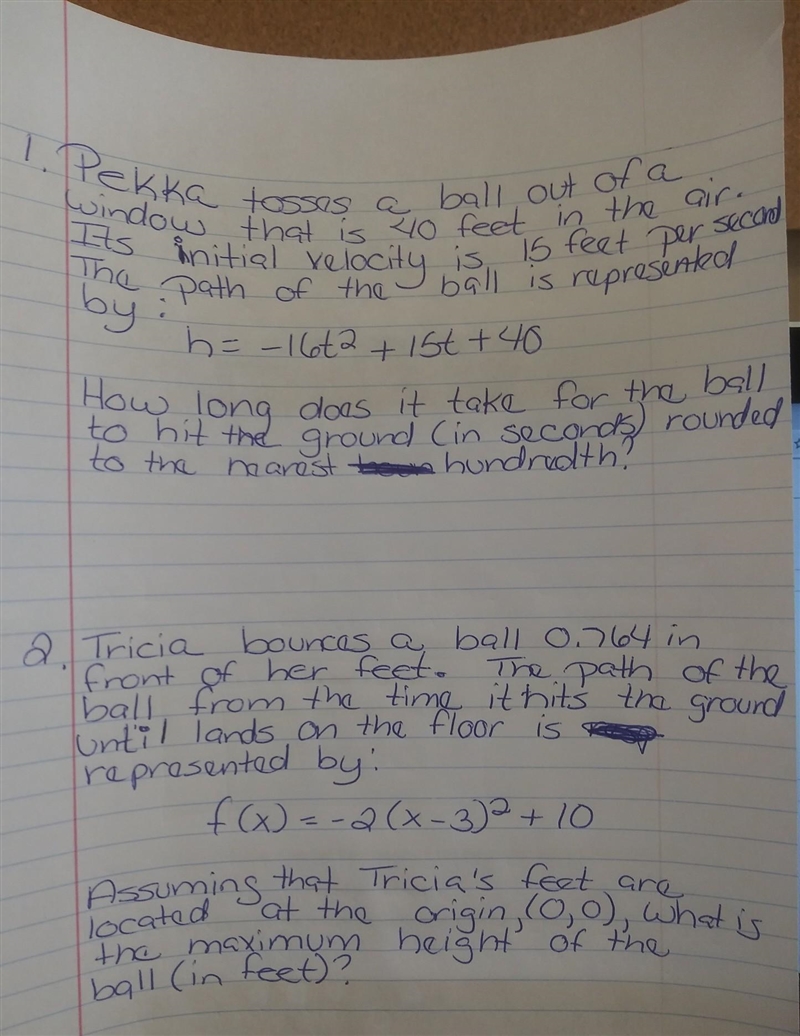 1. Pekka tosses a ball out of a
window that is 40 feet in the air.
Its initial velocity is 15 feet per second
The path of the ball is represented
by:
h = -16t² + 15t + 40
How long does it take for the ball
to hit the ground (in seconds) rounded
to the nearest hundredth?
2. Tricia bounces a ball 0.764 in
front of her feet. The path of the
ball from the time it hits the ground
until lands on the floor is
represented by:
f(x) = -2(x-3)² + 10
Assuming that Tricia's feet are
located at the origin, (0,0), what is
the maximum height of the
ball (in feet)?